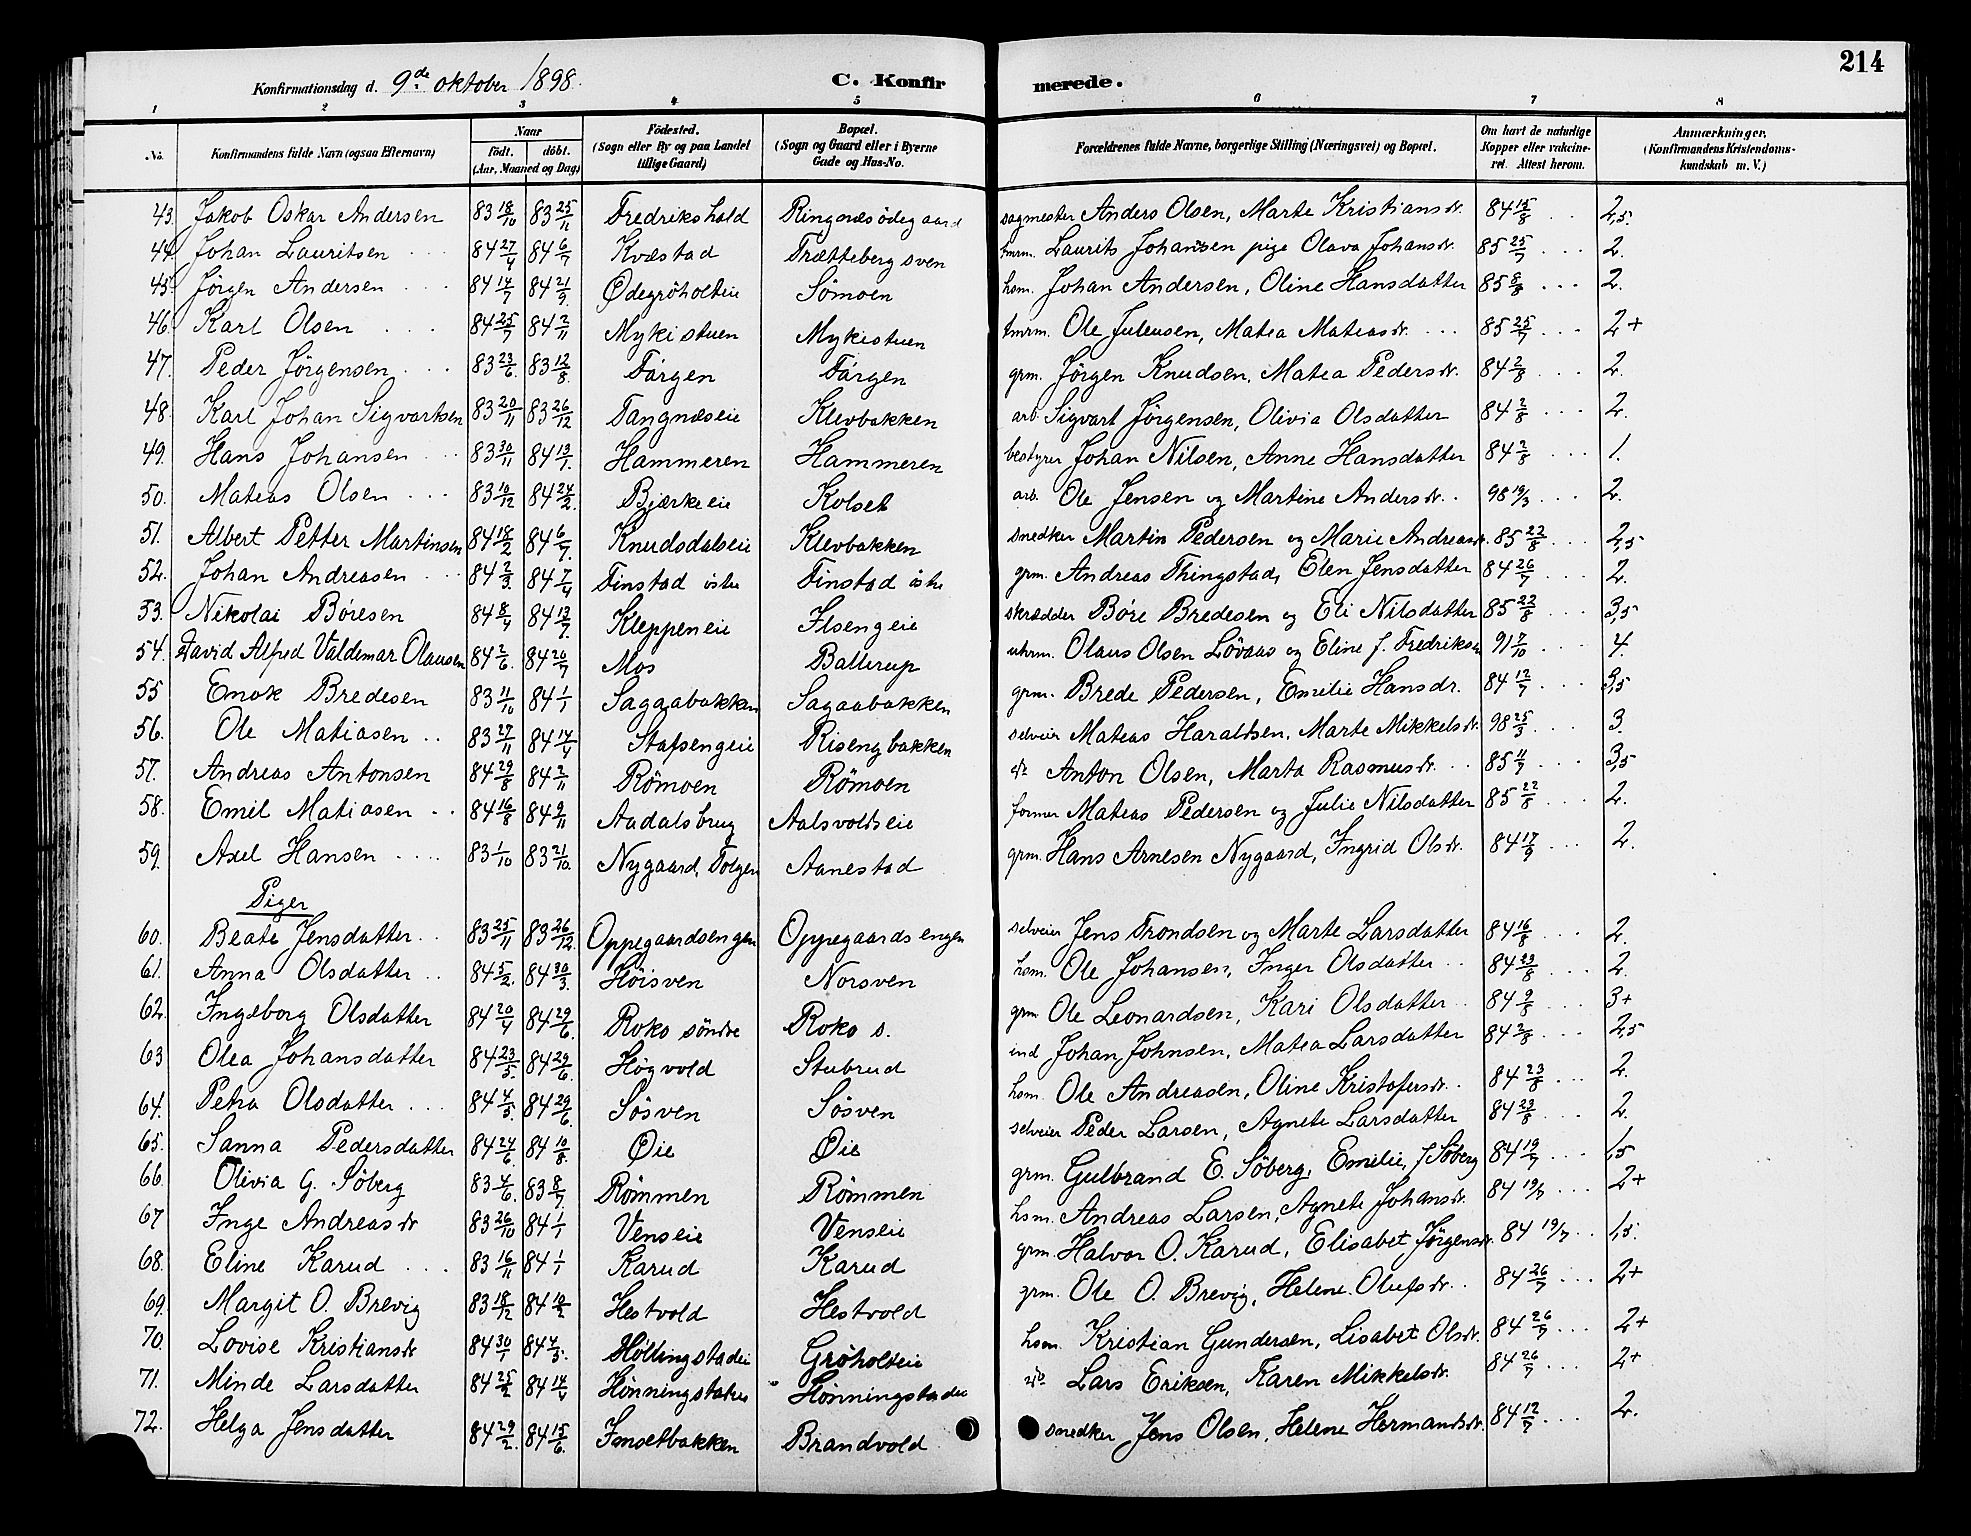 214
Konfirmationsdag d. 9de oktober 1898. C. Konfirmerede.
1 2 3 4 5 6 7 8
No. Konfirmandens fulde Navn (ogsaa Efternavn) Naar født. døbt. (Aar, Maaned og Dag) Fødested. (Sogn eller By og paa Landet tillige Gaard) Bopæl. (Sogn og Gaard eller i Byerne Gade og Hus-No. Forældrenes fulde Navne, borgerlige Stilling (Næringsvei) og Bopæl. Om havt de naturlige Kopper eller vakcineret. Attest herom. Anmærkninger. (Konfirmandens Kristendomskundskab m. V.)
43. Jakob Oskar Andersen 83 18/10 83 25/11 Fredrikshald Ringnæsødegaard sagmester Anders Olsen, Marte Kristiansdr. 84 15/8 2,5.
44. Johan Lauritsen 84 27/4 84 6/7 Kvæstad Trætteberg sven tmrm. Laurits Johansen pige Olava Johansdr. 85 25/7 2.
45. Jörgen Andersen 84 14/7 84 21/9 Ødegröholteie Sömoen hsm. Johan Andersen, Oline Hansdatter 85 8/8 2.
46. Karl Olsen 84 25/7 84 2/11 Mykistuen Mykistuen tmrm. Ole Juleusen, Matea Mateasdr. 85 25/7 2+
47. Peder Jörgensen 83 23/6 83 12/8 Färgen Färgen grm. Jörgen Knudsen, Matea Pedersdr. 84 2/8 2.
48. Karl Johan Sigvartsen 83 20/11 83 26/12 Tangnæseie Klevbakken arb. Sigvart Jörgensen, Olivia Olsdatter 84 2/8 2.
49. Hans Johansen 83 30/11 84 13/1 Hammeren Hammeren bestyrer Johan Nilsen, Anne Hansdatter 84 2/8 1.
50. Mateas Olsen 83 10/12 84 24/2 Bjærkeeie Kolset arb. Ole Jensen og Martine Andersdr. 98 19/3 2.
51. Albert Petter Martinsen 84 18/2 84 6/7 Knudsdalseie Klevbakken snedker Martin Pedersen og Marie Andreasdr. 85 22/8 2,5
52. Johan Andreasen 84 2/3 84 7/4 Finstad östre Finstad östre grm. Andreas Thingstad, Elen Jensdatter 84 26/7 2.
53. Nikolai Böresen 84 8/4 84 13/7 Kleppeneie Ilsengeie skrædder Böre Bredesen og Eli Nilsdatter 85 22/8 3,5
54. David Alfred Valdemar Olausen 84 2/6 84 20/7 Mos Ballerup uhrm. Olaus Olsen Lövaas og Eline f. Fredriksen 91 7/10 4.
55 Enok Bredesen 83 11/10 84 1/1 Sagaabakken Sagaabakken grm. Brede Pedersen, Emilie Hansdr. 84 12/7 3,5
56. Ole Matiasen 83 27/11 84 14/4 Stafsengeie Risengbakken selveier Mateas Haraldsen, Marte Mikkelsdr. 98 25/3 3.
57. Andreas Antonsen 84 29/8 84 2/11 Römoen Römoen do Anton Olsen, Marta Rasmusdr. 85 11/7 3,5
58. Emil Matiasen 84 16/8 84 9/11 Aadalsbrug Aalsvoldseie former Mateas Pedersen og Julie Nilsdatter 85 22/8 2.
59. Axel Hansen 83 1/10 83 21/10 Nygaard, Tolgen Aanestad grm. Hans Arnesen Nygaard, Ingrid Olsdr. 84 17/9 2.
Piger
60. Beate Jensdatter 83 25/11 83 26/12 Oppegaardsengen Oppegaardsengen selveier Jens Trondsen og Marte Larsdatter 84 16/8 2.
61. Anna Olsdatter 84 5/2 84 30/3 Höisven Norsven hsm. Ole Johansen, Inger Olsdatter 84 23/8 2.
62. Ingeborg Olsdatter 84 20/4 84 29/6 Roko söndre Roko s. grm Ole Leonardsen, Kari Olsdatter 84 9/8 3+
63 Olea Johansdatter 84 23/5 84 29/6 Högvold Stubrud ind Johan Johnsen, Matea Larsdatter 84 2/8 2,5
64. Petra Olsdatter 84 4/5 84 29/6 Sösven Sösven hsm. Ole Andreasen, Oline Kristofersdr. 84 23/8 2.
65. Sanna Pedersdatter 84 24/6 84 10/8 Øie Øie selveier Peder Larsen, Agnete Larsdatter 84 23/8 2.
66. Olivia G. Söberg 83 4/6 83 8/7 Römmen Römmen grm. Gulbrand E. Söberg, Emilie, f Söberg 84 19/7 1,5
67 Inge Andreasdr 83 26/10 84 1/1 Venseie Venseie hsm. Andreas Larsen, Agnete Johansdr. 84 19/7 2+
68. Eline Karud 83 16/11 84 1/1 Karud Karud grm. Halvor O. Karud, Elisabet Jörgensdr. 84 19/7 1,5.
69. Margit O. Brevig 83 18/12 84 10/2 Hestvold Hestvold grm. Ole O. Brevig, Helene Olufsdr. 84 26/7 2+
70. Lovise Kristiansdr 84 30/1 84 4/5 Höllingstadeie Gröholteie hsm. Kristian Gundersen, Lisabet Olsdr. 84 26/7 2+
71. Minde Larsdatter 84 25/2 84 14/4 Hönningstadeie Hönningstadeie do Lars Eriksen, Karen Mikkelsdr. 84 26/7 2+
72. Helga Jensdatter 84 29/2 84 15/6 Imsetbakken Brandvold snedker Jens Olsen, Helene Hermandsdr. 84 12/7 2.